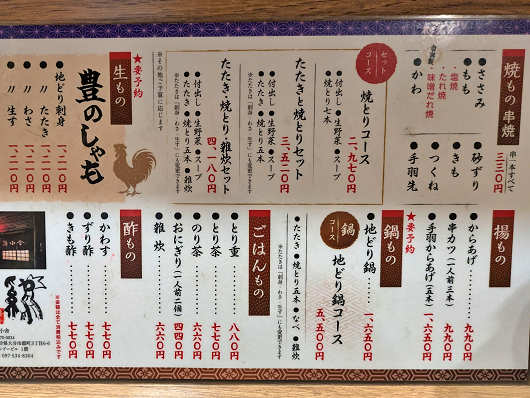 焼もの 串焼
串一本すべて
三三〇円
●ささみ
●もも
塩焼
たれ焼
味噌だれ焼
●かわ
●砂ずり
●きも
●つくね
●手羽先
セットコース
焼とりコース
二、九七〇円
●付出し●生野菜●スープ
●焼とり七本
たたきと焼とりセット
三、五二〇円
●付出し●生野菜●スープ
●たたき●焼とり五本
たたき・焼とり・雑炊セット
四、一八〇円
●付出し●生野菜●スープ
●たたき●焼とり五本●雑炊
豊のしゃも
★要予約
生もの
●地どり刺身 一、二一〇円
●〃 たたき 一、二一〇円
●〃 わさ 一、二一〇円
●〃 生ず 一、二一〇円
揚もの
●からあげ 九九〇円
●串カツ(一人前三本) 九九〇円
●手羽からあげ(五本) 一、六五〇円
★要予約
鍋もの
●地どり鍋 一、六五〇円
鍋コース
地どり鍋コース
五、五〇〇円
●たたき●焼とり五本●なべ●雑炊
ごはんもの
●とり重 八八〇円
●のり茶 六六〇円
●おにぎり(一人前二個) 四四〇円
●雑炊 六六〇円
酢もの
●かわす 七七〇円
●ずり酢 七七〇円
●きも酢 七七〇円